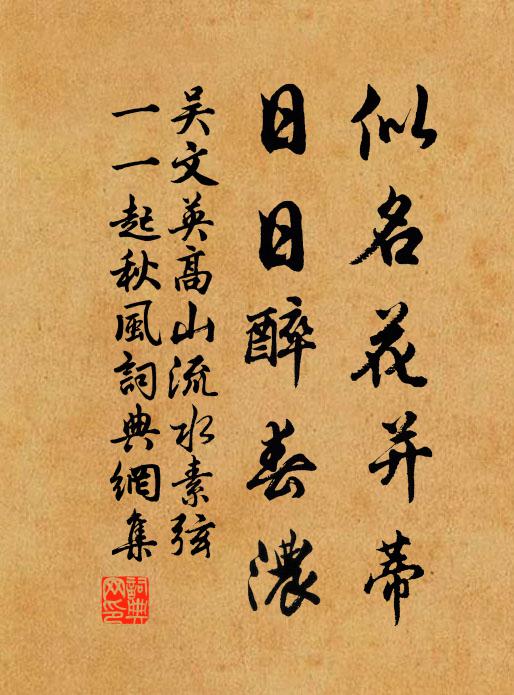 似名花并蒂
日日醉春濃
吴文英高山流水素弦
一一起秋風詞典網集
詞典网印